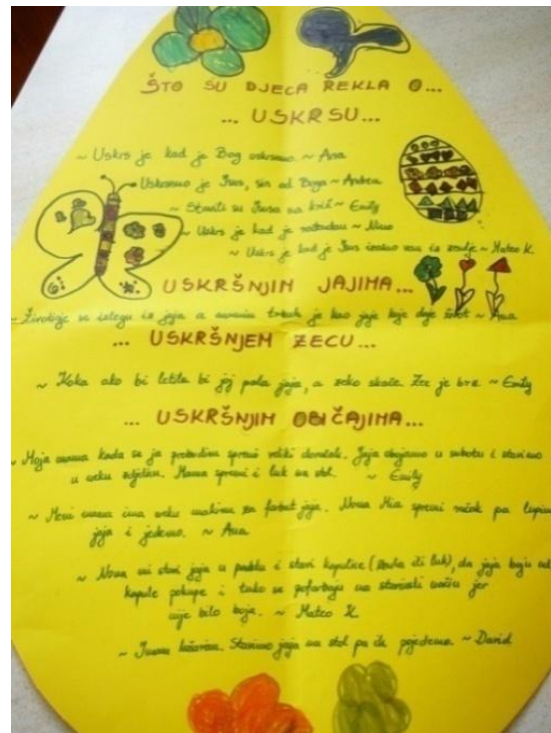 ŠTO SU DJECA REKLA O...
... USKRSU...
~ Uskrs je kad je Bog uskrsnuo. ~ Ana
~ Uskrsnuo je Isus, sin od Boga ~ Andrea
~ Stavili su Isusa na križ ~ Emily
~ Uskrs je kad je ~ Nino
~ Uskrs je kad je Isus izašao van iz zemlje ~ Mateo K.
USKRŠNJIM JAJIMA...
~ Životinje se izlegu iz jaja a mamin trbuh je kao jaje koje daje život ~ Ana
... USKRŠNJEM ZECU...
~ Koka ako bi letila bi joj pala jaja, a zeko skače. Zec je brz ~ Emily
... USKRŠNJIM OBIČAJIMA...
~ Moja mama kada se ja probudim spremi veliki doručak. Jaja obojamo u subotu i stavimo
u neku zdjelicu. Mama spremi i luk na stol. ~ Emily
~ Meni mama ima neku mašinu za farbat jaja. Nona Mia spremi ručak pa lupimo
jaja i jedemo. ~ Ana
~ Nona mi stavi jaja u padelu i stavi kapulice ( ili luk), da jaja boju od
kapule pokupe i tako se pofarbaju na starinski način jer
nije bilo boja. ~ Mateo K.
~ Imamo košaricu. Stavimo jaja na stol pa ih pojedemo. ~ David